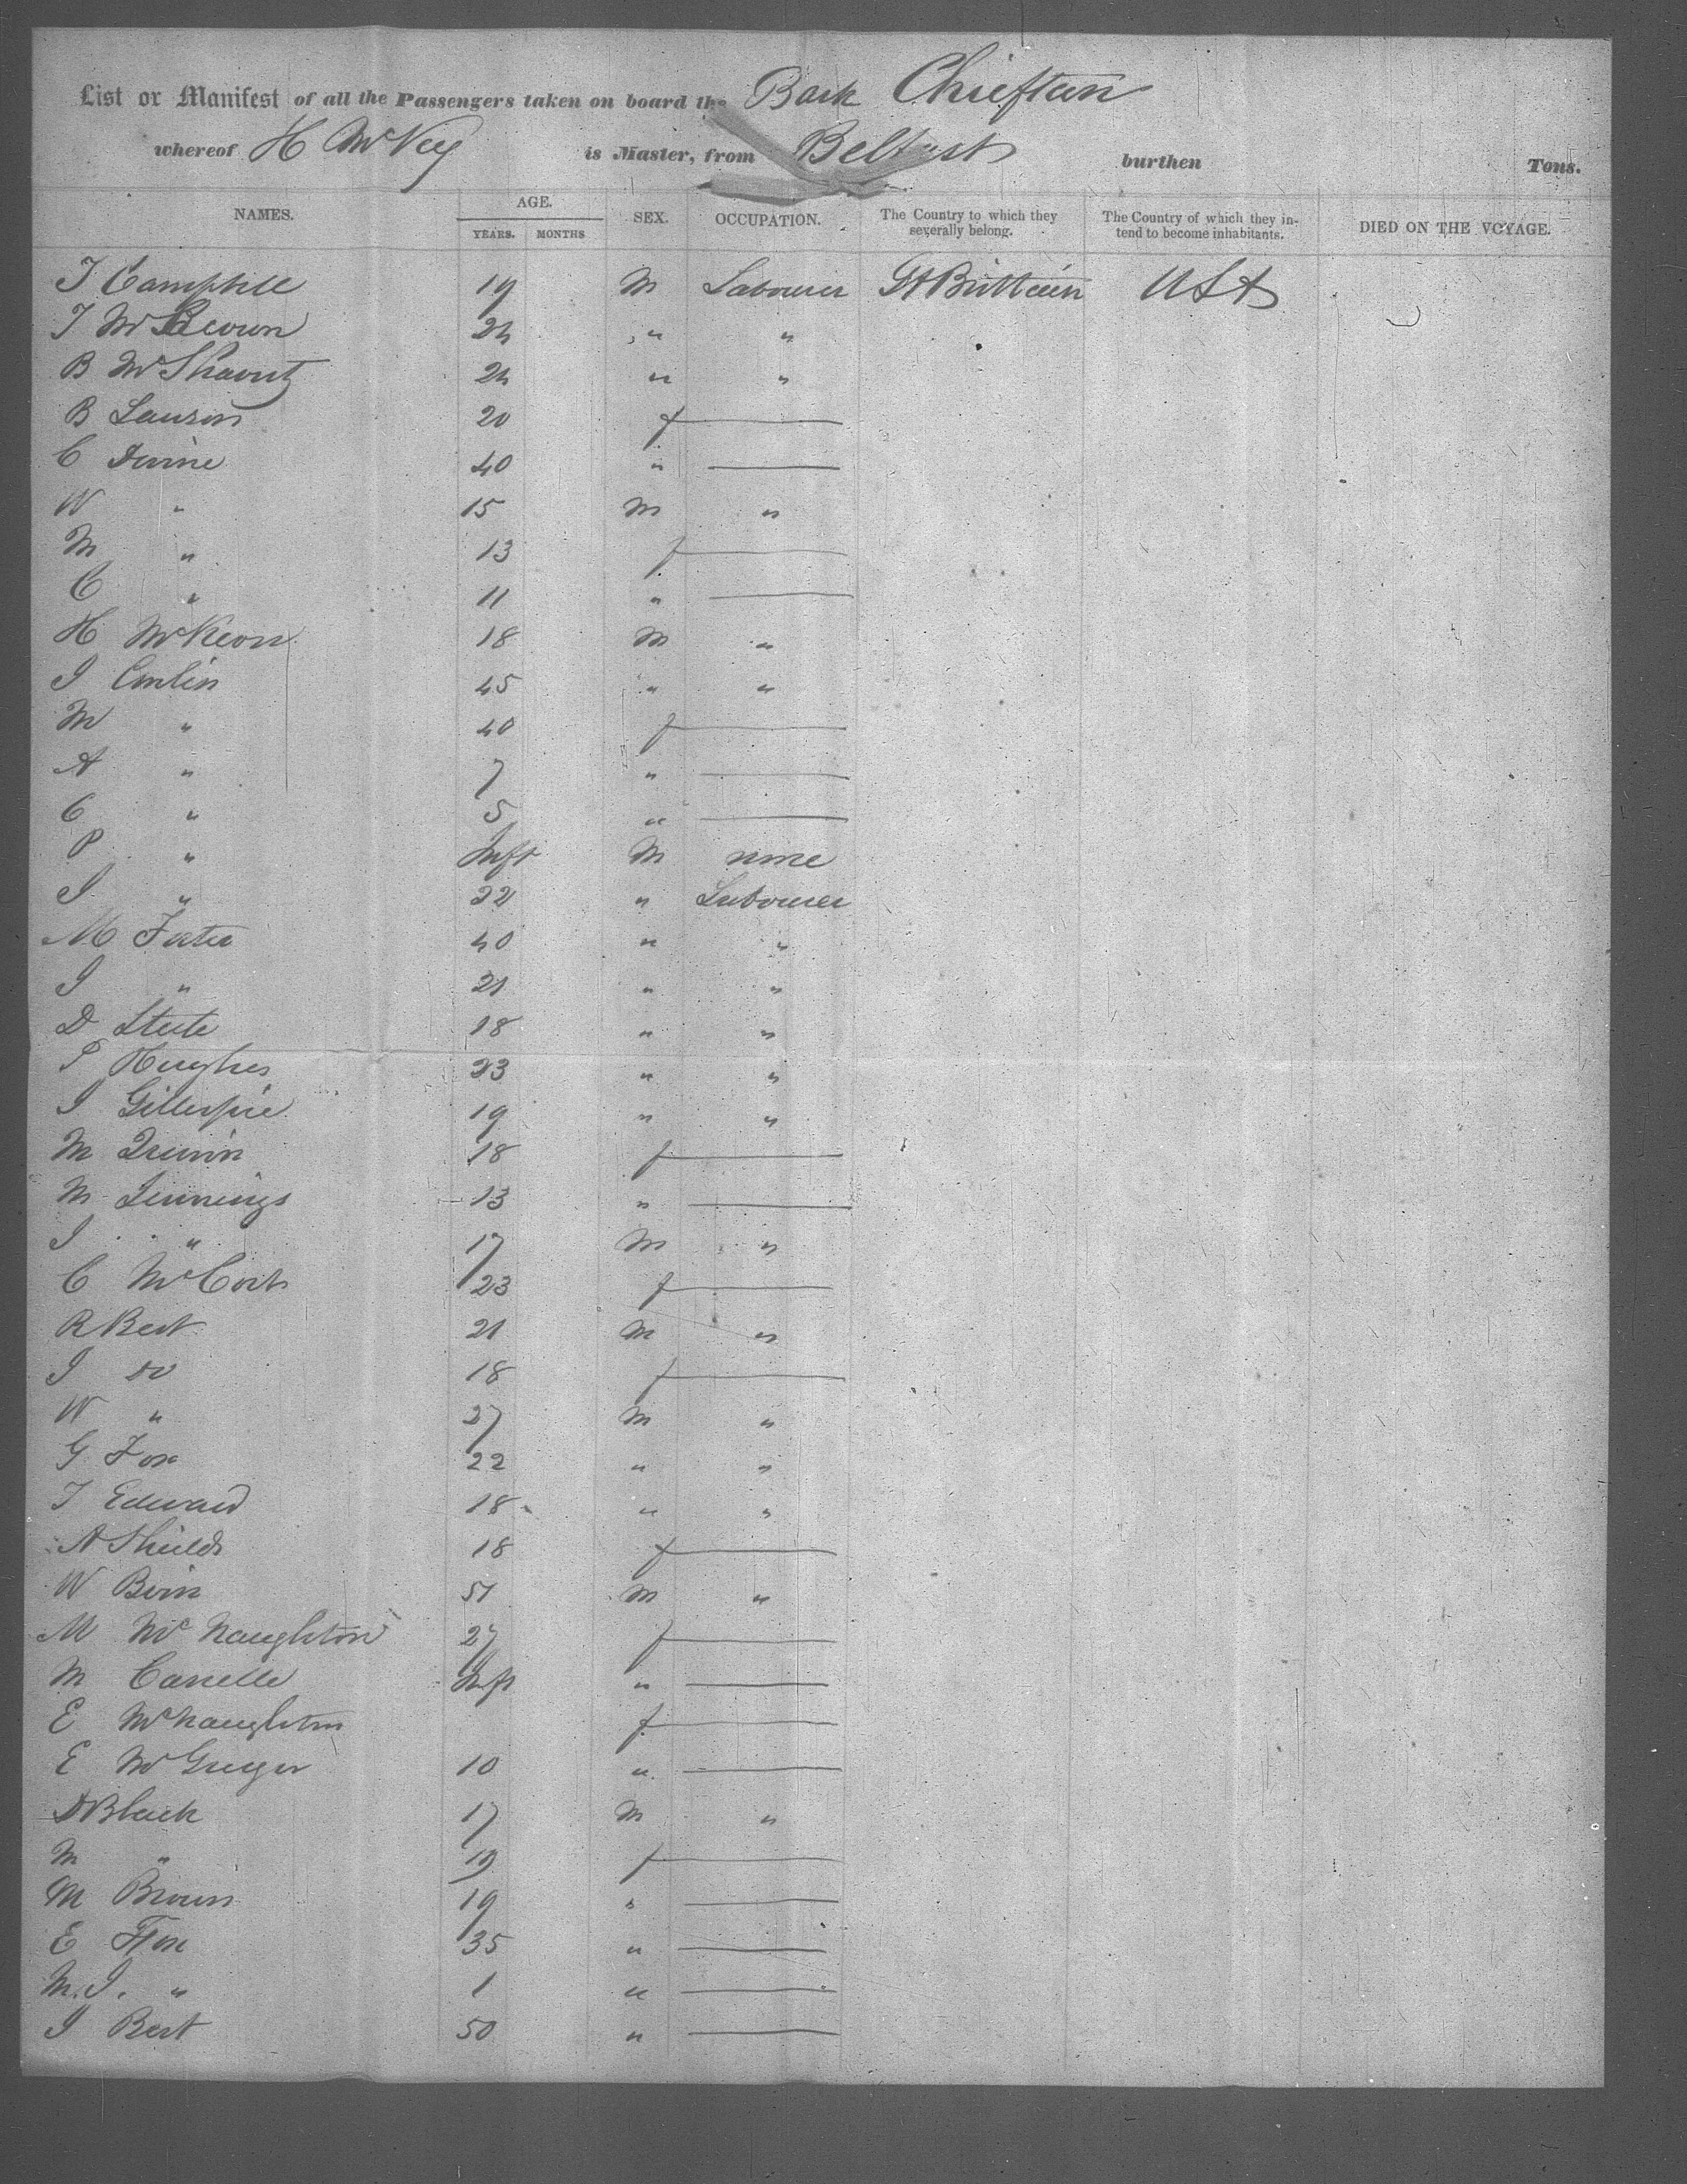 List or Manifest of all the Passengers taken on board the Bark Chieftan
whereof H McVey is Master, from Belfast burthen Tons.
NAMES. AGE. YEARS. MONTHS SEX. OCCUPATION. The Country to which they severally belong. The Country of which they intend to become inhabitants. DIED ON THE VOYAGE.
T Campbell 19 M Labourer Gt Brittain USA
T 24 " "
B 24 " "
B Lauson 20 f
C Devine 40 "
W " 15 M "
M " 13 f
C " 11 "
H McKeon 18 M "
J Conlin 45 " "
M " 40 f
A " 7 "
C " 5 "
P " Inft M none
J " 22 " Labourer
M Foster 40 " "
J " 21 " "
D Steele 18 " "
P Hughes 23 " "
J Gillespie 19 " "
M Quinn 18 f
M Jennings 13 "
J " 17 M "
C McCort 23 f
R Best 21 M "
J do 18 f
W " 27 M "
G Fox 22 " "
T Edward 18 " "
A Shields 18 f
W 51 M "
M McNaughton 27 f
M Inft "
E McNaughton f
E McGregor 10 "
D Black 17 M "
M " 19 f
M Brown 19 "
E Ffox 35 "
M.J. " 1 "
J Best 50 "